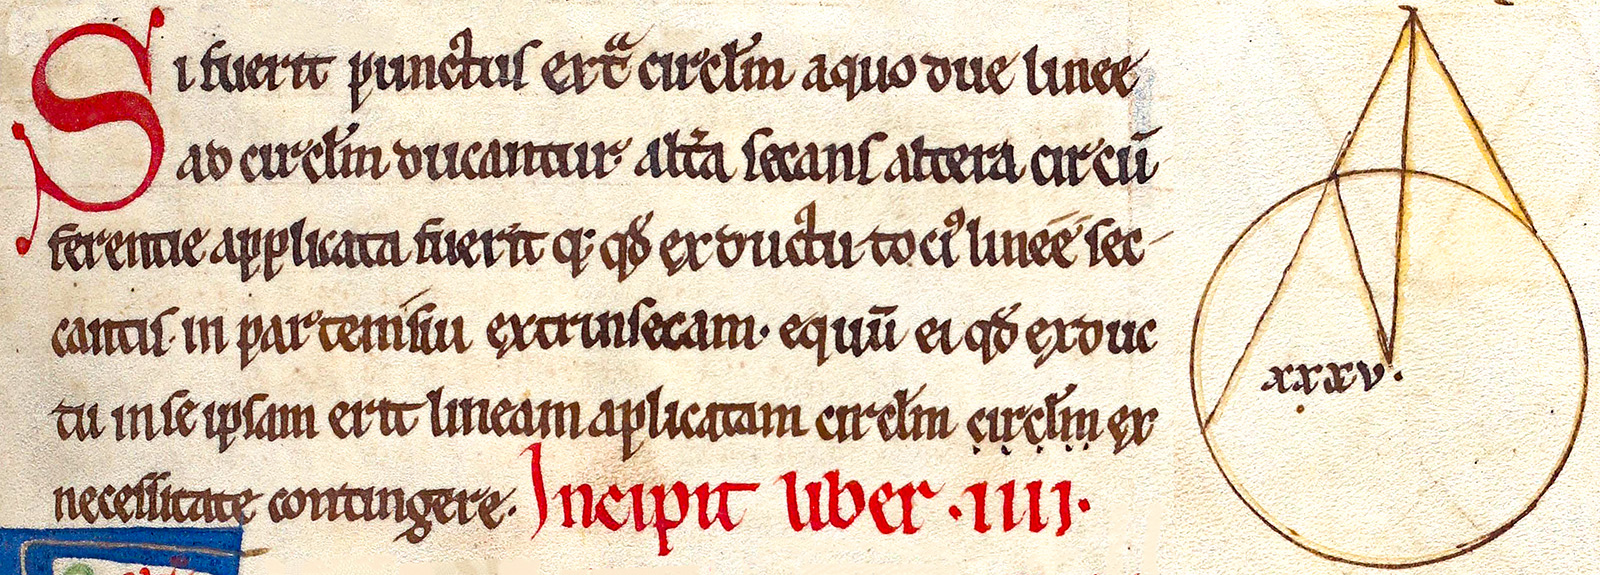 Si fuerit punctus extᵃ circłm a quo due linee
ad circłm ducantur· altᵃa secans altera circū
ferentie applicata fuerit qͥ qđ ex ductu tociꝰ lineē sec-
cantis· in partem suu extrinsecam· equū ei qđ ex duc
tu in se ipsam erit lineam aplicatam circłm circłm ex
necessitate contingere· Incipit liber ·iiii·
xxxv·